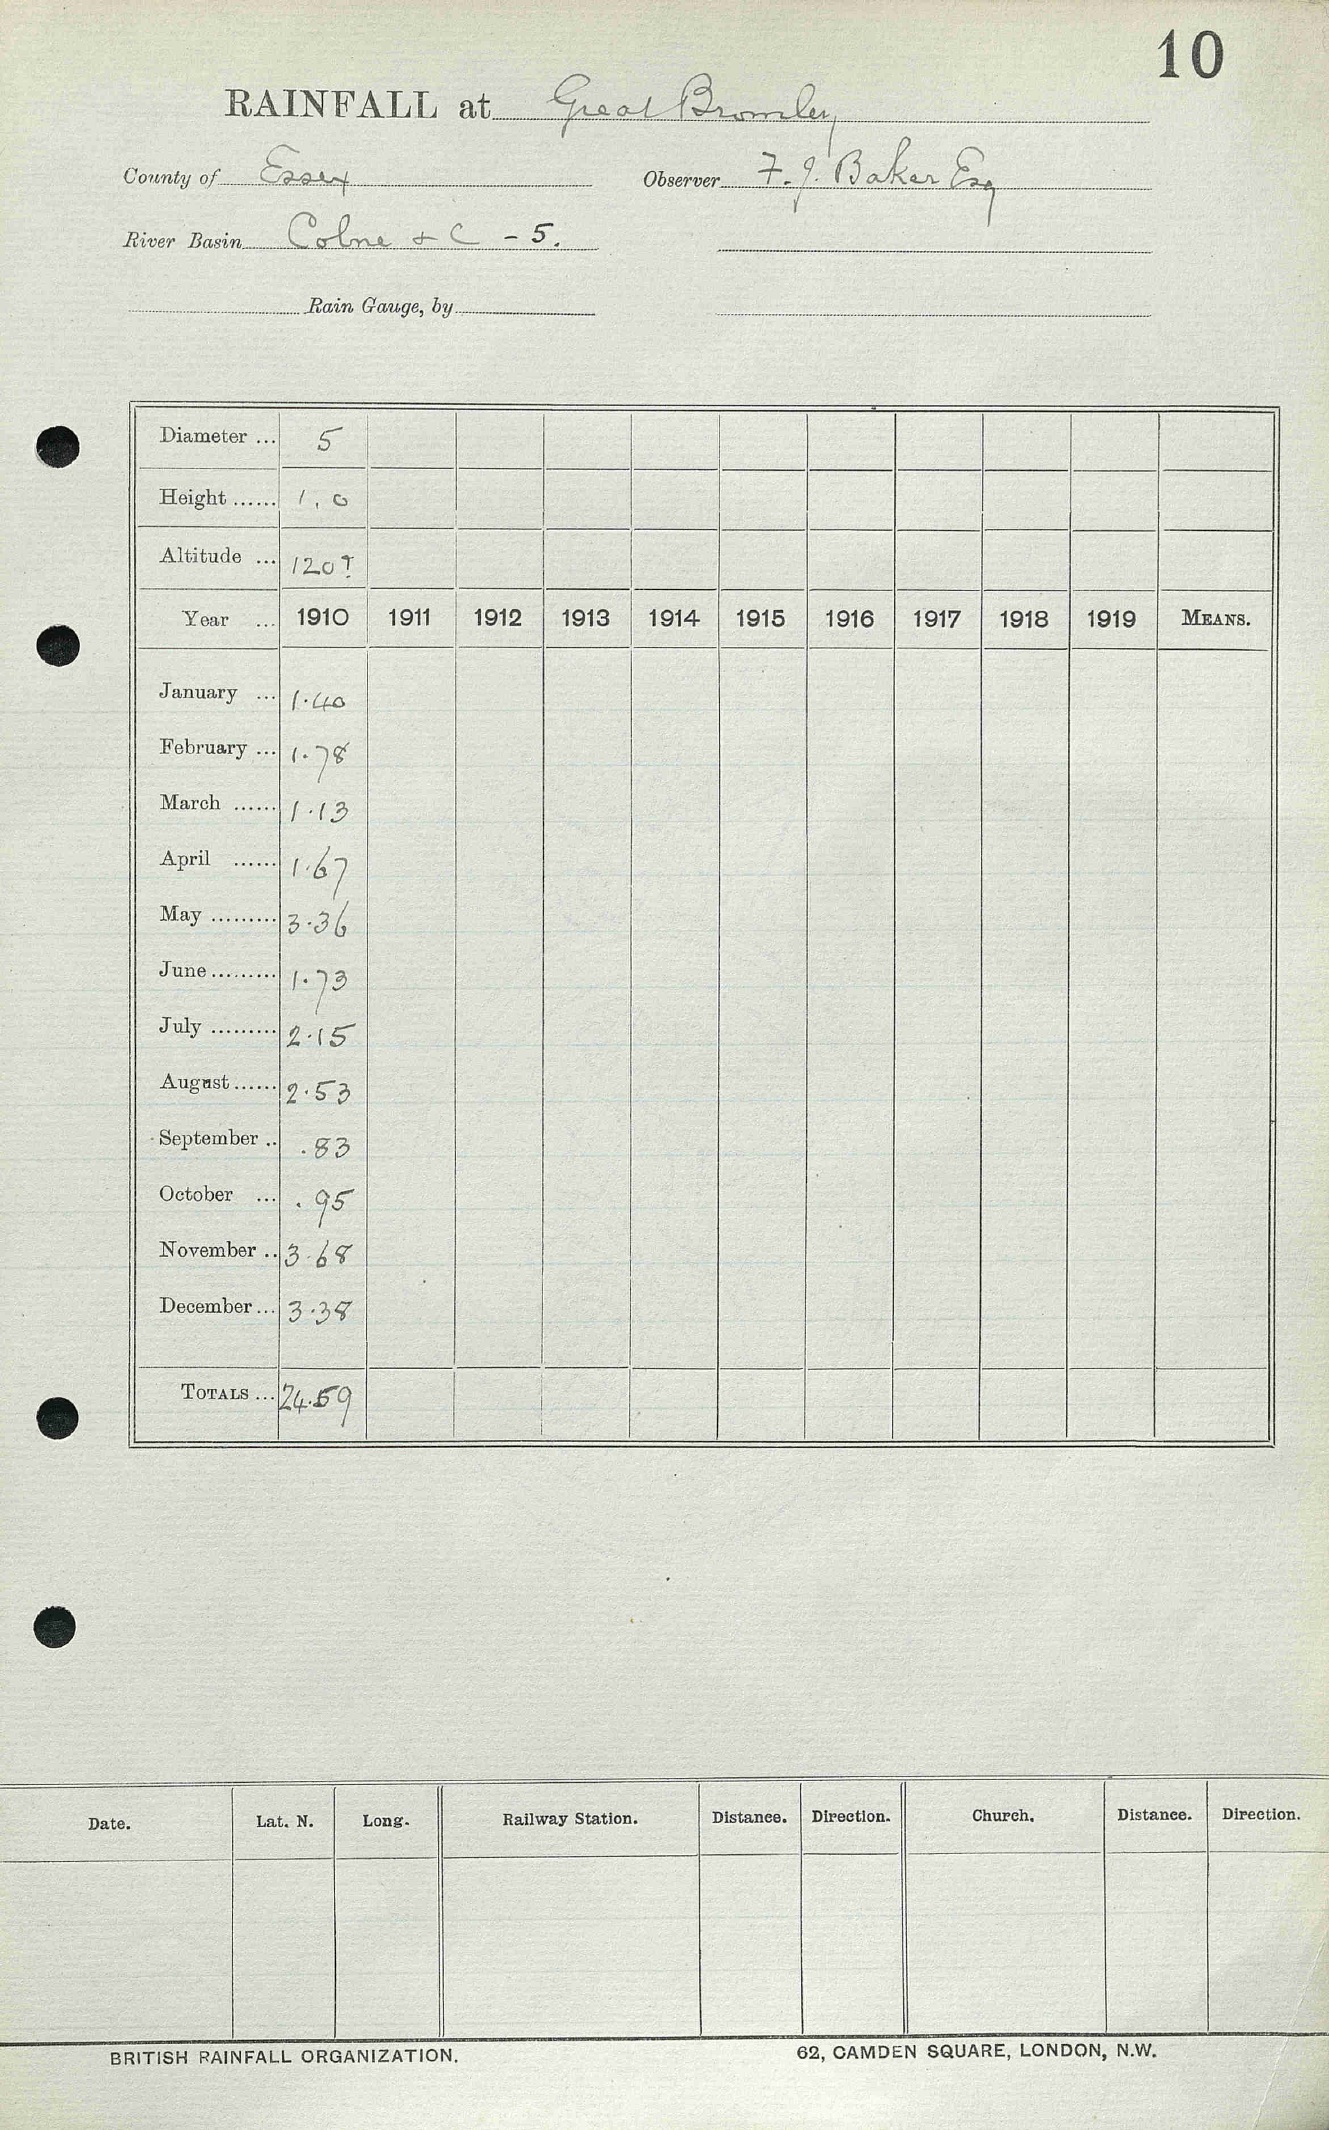 10
RAINFALL at Great Bromley
County of Essex Observer F. J. Baker Esq
River Basin Colne & C - 5.
Rain Gauge, by
Diameter ... 5
Height ...... 1.0
Altitude ... 120?
Year ... 1910 1911 1912 1913 1914 1915 1916 1917 1918 1919 MEANS.
January ... 1.40
February ... 1.78
March ...... 1.13
April ...... 1.67
May ......... 3.36
June ......... 1.73
July ......... 2.15
August ...... 2.53
September .. .83
October ... .95
November .. 3.68
December ... 3.38
TOTALS ... 24.59
Date. Lat. N. Long. Railway Station. Distance. Direction. Church. Distance. Direction.
BRITISH RAINFALL ORGANIZATION. 62, CAMDEN SQUARE, LONDON, N.W.